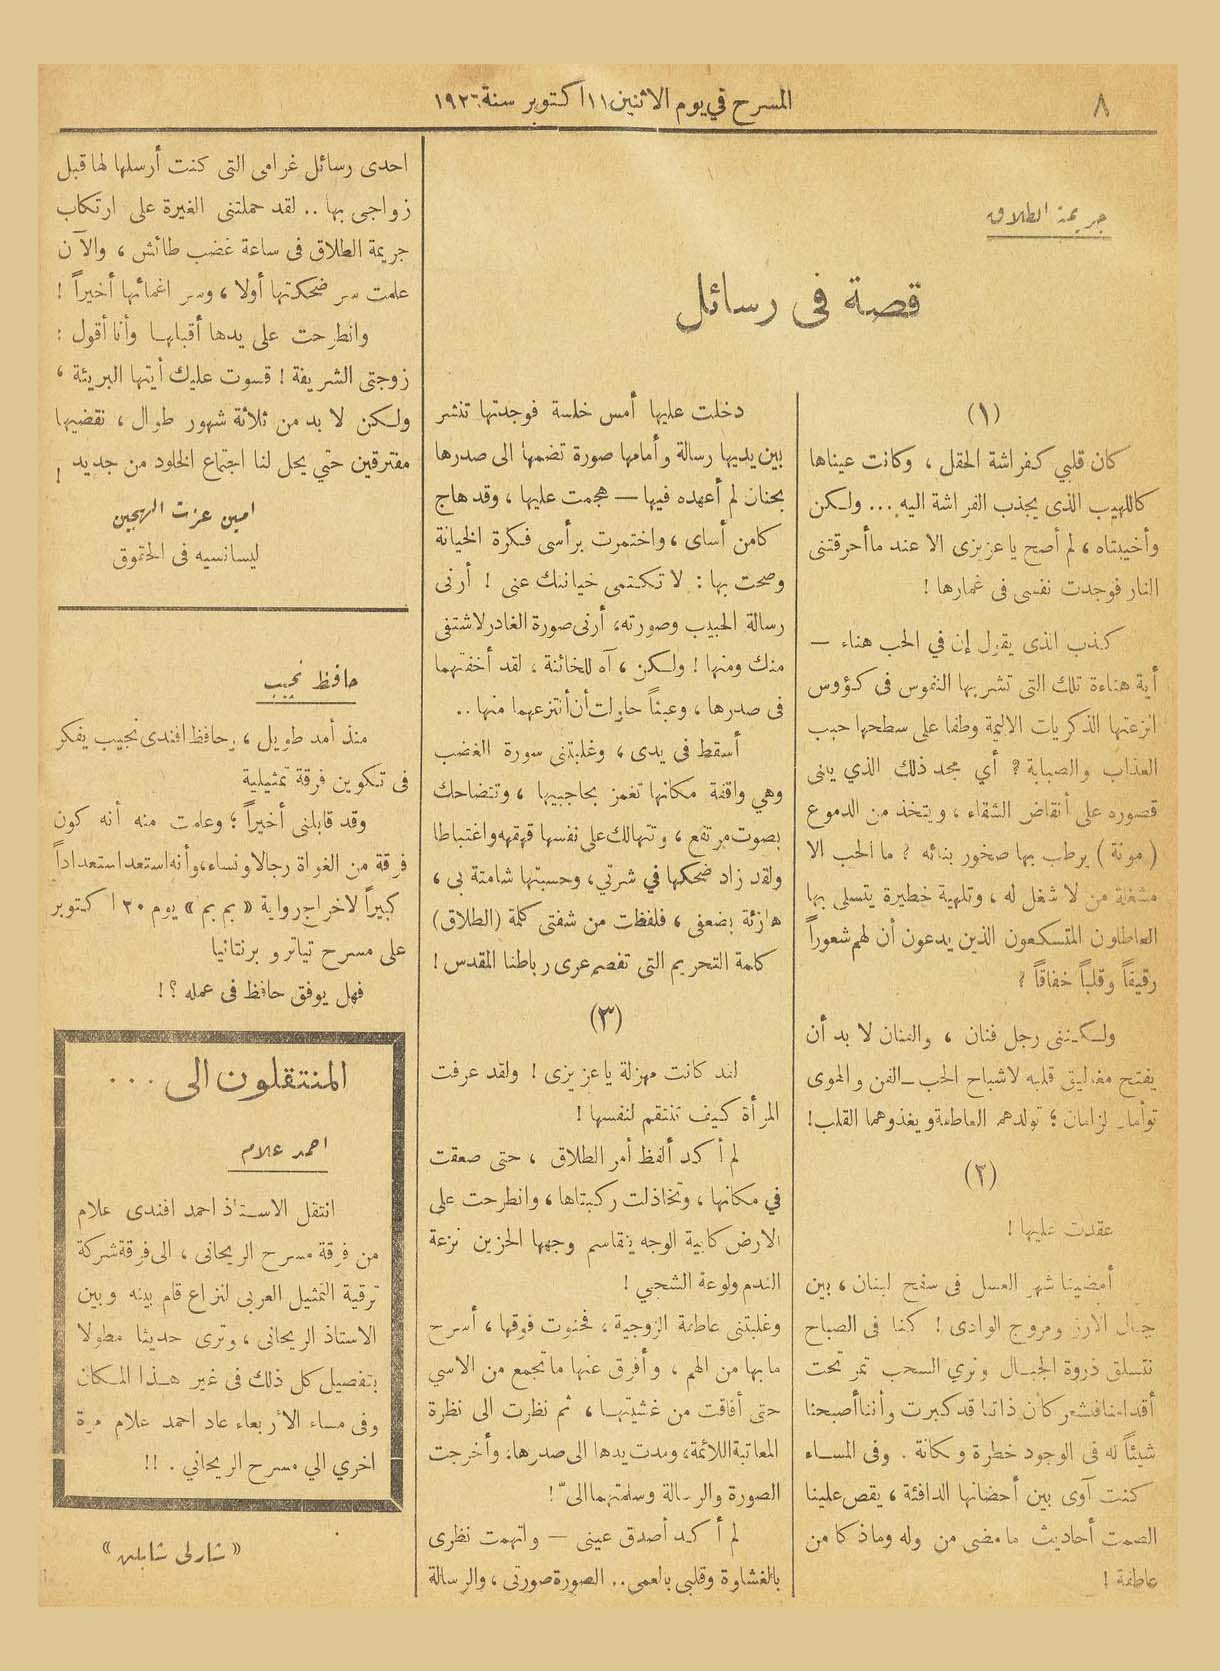 ٨
المسرح في يوم الاثنين ١١ اكتوبر سنة ١٩٢٦
جريمة الطلاق
قصة فى رسائل
(١)
كان قلبي كفراشة الحقل ، وكانت عيناها
كاللهيب الذى يجذب الفراشة اليه ... ولكن
وأخيبتاه ، لم أصح ياعزيزى الا عند ما أحرقتنى
النار فوجدت نفسى فى غمارها !
كذب الذى يقول إن في الحب هناء —
أية هناءة تلك التى تشربها النفوس فى كؤوس
انزعتها الذكريات الاليمة وطفا على سطحها حبب
العذاب والصبابة ? أي مجد ذلك الذي يبنى
قصوره على أنقاض الشقاء ، ويتخذ من الدموع
( مونة ) يرطب بها صخور بنائه ? ما الحب الا
مشغلة من لا شغل له ، وتلهية خطيرة يتسلى بها
العاطلون المتسكعون الذين يدعون أن لهم شعوراً
رقيقاً وقلباً خفاقاً ?
ولكننى رجل فنان ، والفنان لا بد أن
يفتح مغاليق قلبه لاشباح الحب ــ الفن والهوى
توأمان لزامان ؛ تولدهم العاطفة ويغذوهما القلب !
(٢)
عقدت عليها !
أمضينا شهر العسل فى سفح لبنان ، بين
جبال الأرز ومروج الوادى ! كنا فى الصباح
نتسلق ذروة الجبال ونري السحب تمر تحت
أقدامنا فنشعر كأن ذاتنا قد كبرت وأننا أصبحنا
شيئاً له فى الوجود خطرة ومكانة . وفى المساء
كنت آوى بين أحضانها الدافئة ، يقص علينا
الصمت أحاديث ما مضى من وله وما ذكا من
عاطفة !
دخلت عليها أمس خلسة فوجدتها تنشر
بين يديها رسالة وأمامها صورة تضمها الى صدرها
بحنان لم أعهده فيها — هجمت عليها ، وقد هاج
كامن أساى ، واختمرت برأسى فكرة الخيانة
وصحت بها : لا تكتمى خيانتك عنى ! أرنى
رسالة الحبيب وصورته، أرنى صورة الغادر لاشتفى
منك ومنها ! ولكن ، آه للخائنة ، لقد أخفتهما
فى صدرها ، وعبثاً حاولت أن أنتزعهما منها ..
أسقط فى يدى ، وغلبتنى سورة الغضب
وهي واقفة مكانها تغمز بحاجبيها ، وتتضاحك
بصوت مرتفع ، وتتهالك على نفسها قهقهه واغتباطا
ولقد زاد ضحكها في شرتي، وحسبتها شامتة بى ،
هازئة بضعفى ، فلفظت من شفتى كلمة (الطلاق)
كلمة التحريم التى تفصم عرى رباطنا المقدس !
(٣)
لقد كانت مهزلة ياعزيزى ! ولقد عرفت
المرأة كيف تنتقم لنفسها !
لم أكد ألفظ أمر الطلاق ، حتى صعقت
في مكانها ، وتخاذلت ركبتاها ، وانطرحت على
الارض كابية الوجه يتقاسم وجهها الحزين نزعة
الندم ولوعة الشحي !
وغلبتنى عاطفة الزوجية ، فحنوت فوقها ، أسرح
مابها من الهم ، وأفرق عنها ما تجمع من الاسي
حتى أفاقت من غشيتها ، ثم نظرت الى نظرة
المعاتبة اللائمة، ومدت يدها الى صدرها، وأخرجت
الصورة والرسالة وسلمتهما الىّ !
لم أكد أصدق عينى — واتهمت نظرى
بالغشاوة وقلبي بالعمى .. الصورة صورتى ، والرسالة
احدى رسائل غرامى التى كنت أرسلها لها قبل
زواجى بها .. لقد حملتنى الغيرة على ارتكاب
جريمة الطلاق فى ساعة غضب طائش ، والآن
علمت سر ضحكتها أولا ، وسر اغمائها أخيراً !
وانطرحت على يدها أقبلها وأنا أقول :
زوجتى الشريفة ! قسوت عليك أيتها البريئة ،
ولكن لا بد من ثلاثة شهور طوال ، نقضيها
مفترقين حتي يحل لنا اجتماع الخلود من جديد !
امين عزت الهجين
ليسانسيه فى الحقوق
حافظ نجيب
منذ أمد طويل ، وحافظ افندى نجيب يفكر
فى تكوين فرقة تمثيلية
وقد قابلنى أخيراً ؛ وعلمت منه أنه كون
فرقة من الغواة رجالا ونساء، وأنه استعد استعداداً
كبيراً لاخراج رواية « بم بم » يوم ٢٠ اكتوبر
على مسرح تياترو برنتانيا
فهل يوفق حافظ فى عمله ؟!
المنتقلون الى ...
احمد علام
انتقل الاستاذ احمد افندى علام
من فرقة مسرح الريحانى ، الى فرقة شركة
ترقية التمثيل العربى لنزاع قام بينه وبين
الاستاذ الريحانى ، وترى حديثا مطولا
بتفصيل كل ذلك فى غير هذا المكان
وفى مساء الأربعاء عاد احمد علام مرة
اخري الي مسرح الريحاني . !!
« شارلى شابلن »